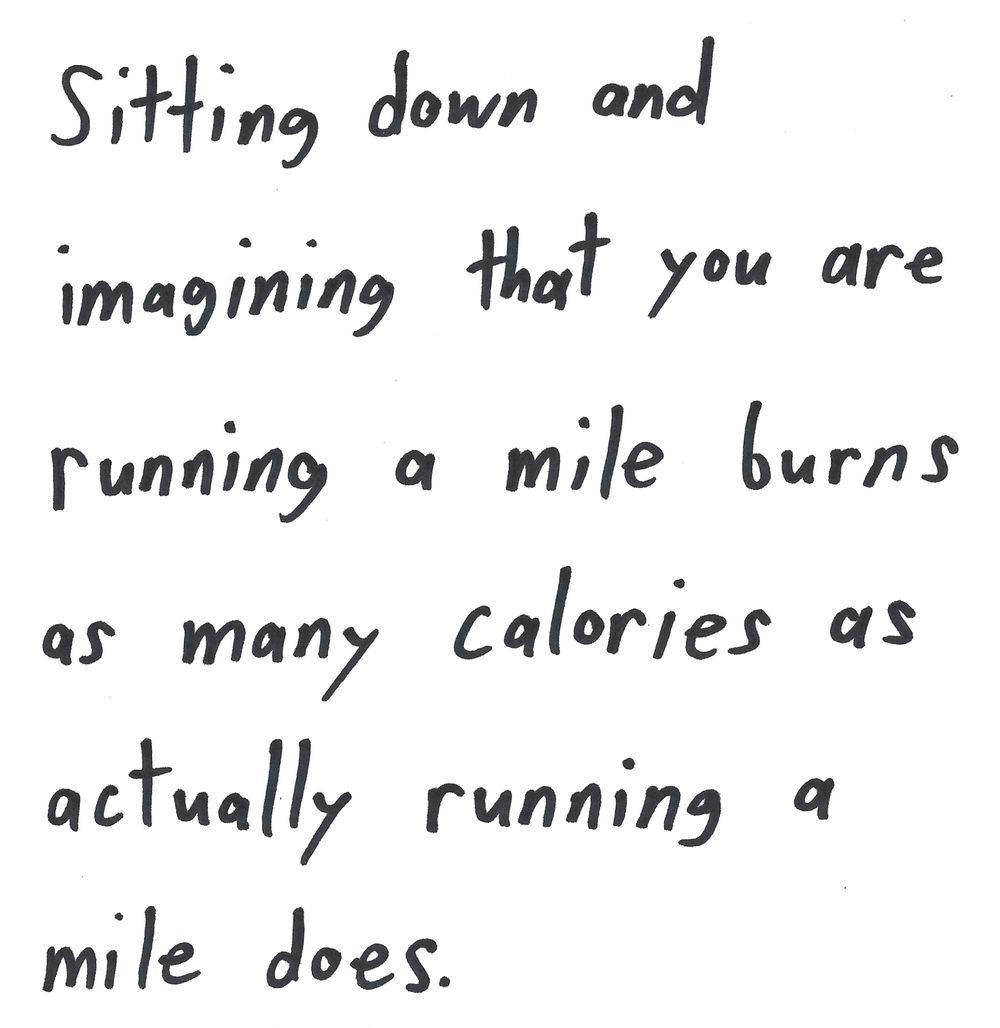 Sitting down and
imagining that you are
running a mile burns
as many calories as
actually running a
mile does.